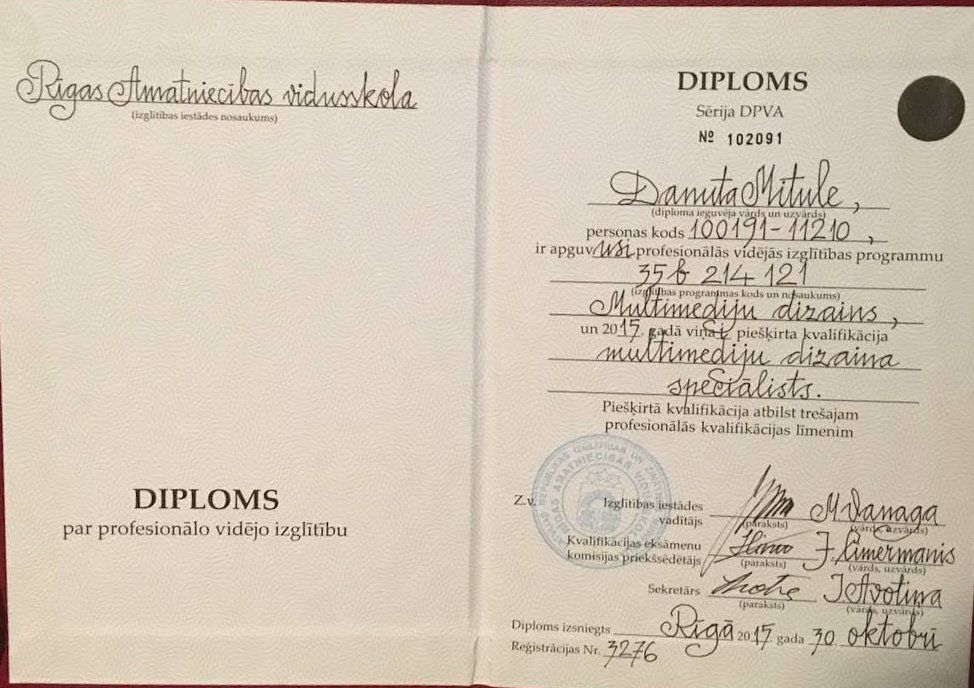 Rīgas Amatniecības vidusskola
(izglītības iestādes nosaukums)
DIPLOMS
par profesionālo vidējo izglītību
DIPLOMS
Sērija DPVA
№ 102091
Danuta Mitule,
(diploma ieguvēja vārds un uzvārds)
personas kods 100191-11210,
ir apguvusi profesionālās vidējās izglītības programmu
35b 214 121
(izglītības programmas kods un nosaukums)
Multimediju dizains,
un 2017. gadā viņai piešķirta kvalifikācija
multimediju dizaina
speciālists.
Piešķirtā kvalifikācija atbilst trešajam
profesionālās kvalifikācijas līmenim
Z.v.
Izglītības iestādes
vadītājs
(paraksts)
M.Vanaga
(vārds, uzvārds)
Kvalifikācijas eksāmenu
komisijas priekšsēdētājs
(paraksts)
J.Cimermanis
(vārds, uzvārds)
Sekretārs
(paraksts)
I.Avotiņa
(vārds, uzvārds)
Diploms izsniegts Rīgā 2017. gada 30. oktobrī
Reģistrācijas Nr. 3276